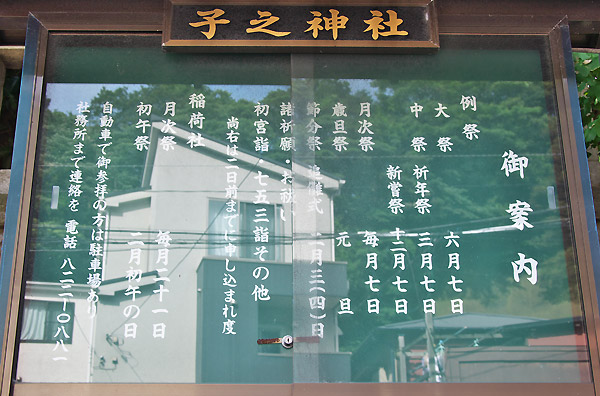 子之神社
御案内
例祭
大祭 六月七日
中祭 祈年祭 三月七日
新嘗祭 十二月七日
月次祭 毎月七日
歳旦祭 元旦
節分祭 追儺式 二月三(四)日
諸祈願・お祓い
初宮詣・七五三詣その他
尚右は二日前までに申し込まれ度
稲荷社
月次祭 毎月二十一日
初午祭 二月初午の日
自動車で御参拝の方は駐車場あり
社務所まで連絡を 電話 八二二-〇八八一